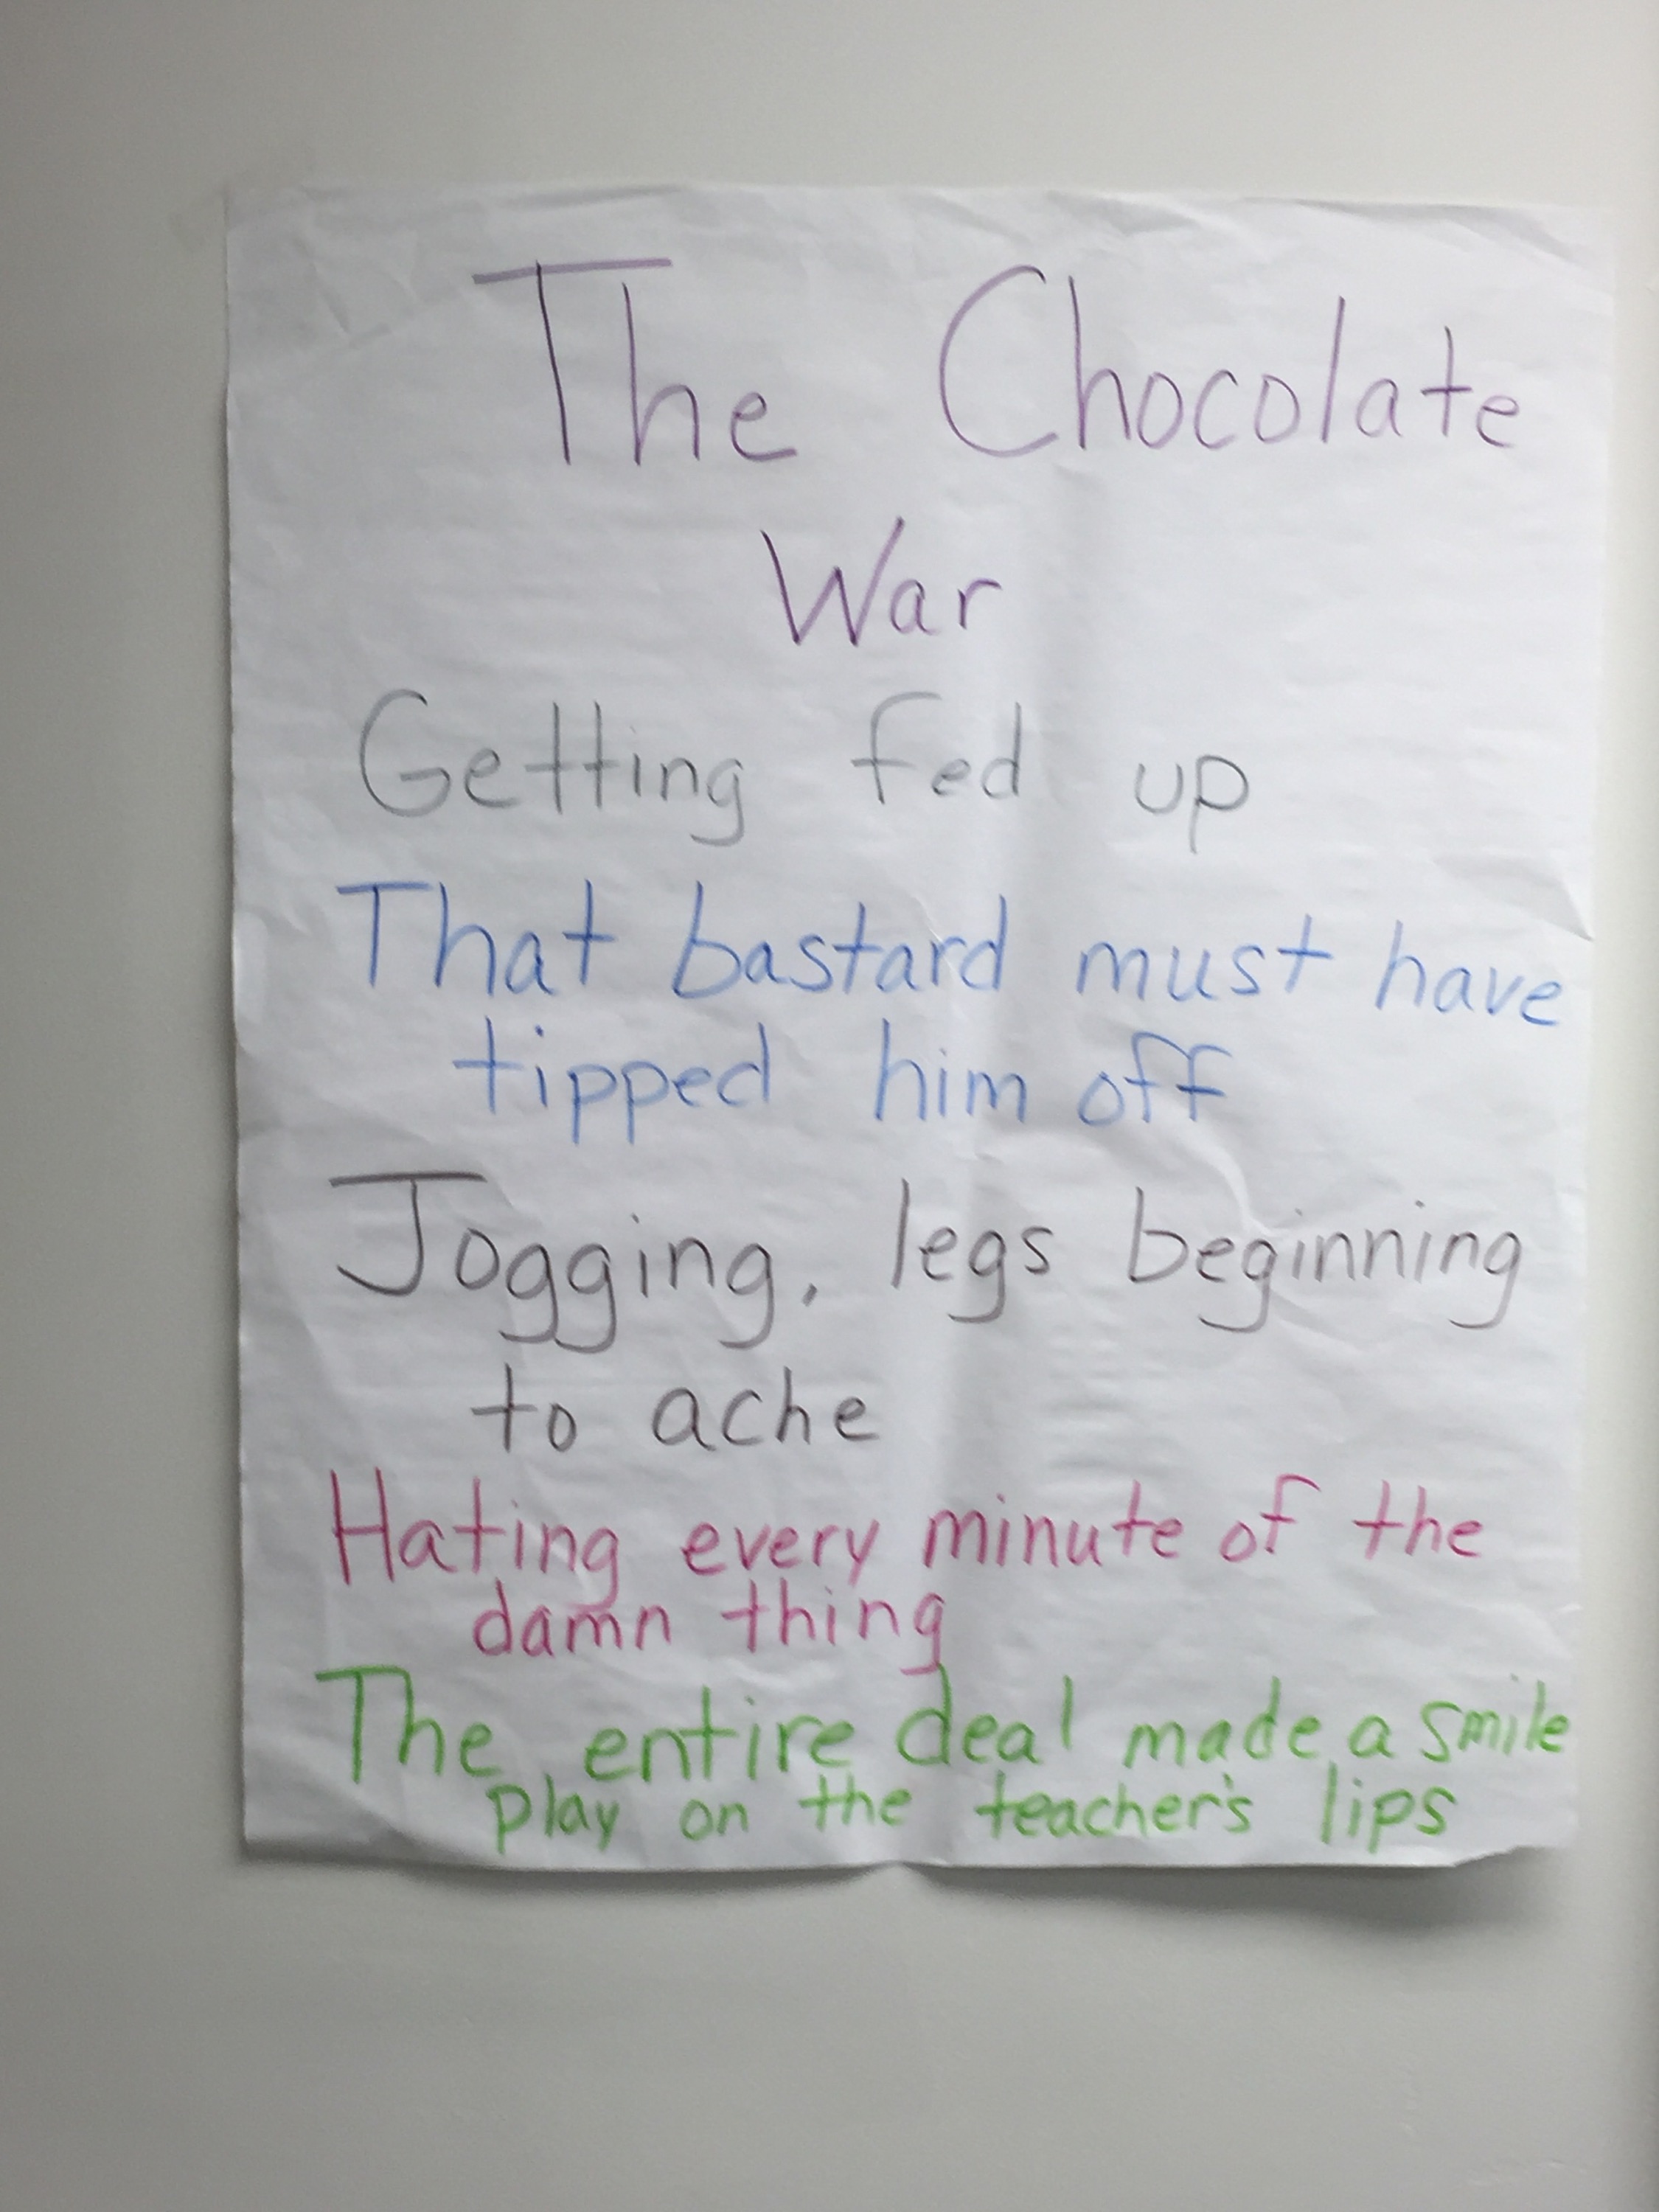 The Chocolate
War
Getting fed up
That bastard must have
tipped him off
Jogging, legs beginning
to ache
Hating every minute of the
damn thing
The entire deal made a smile
play on the teacher's lips